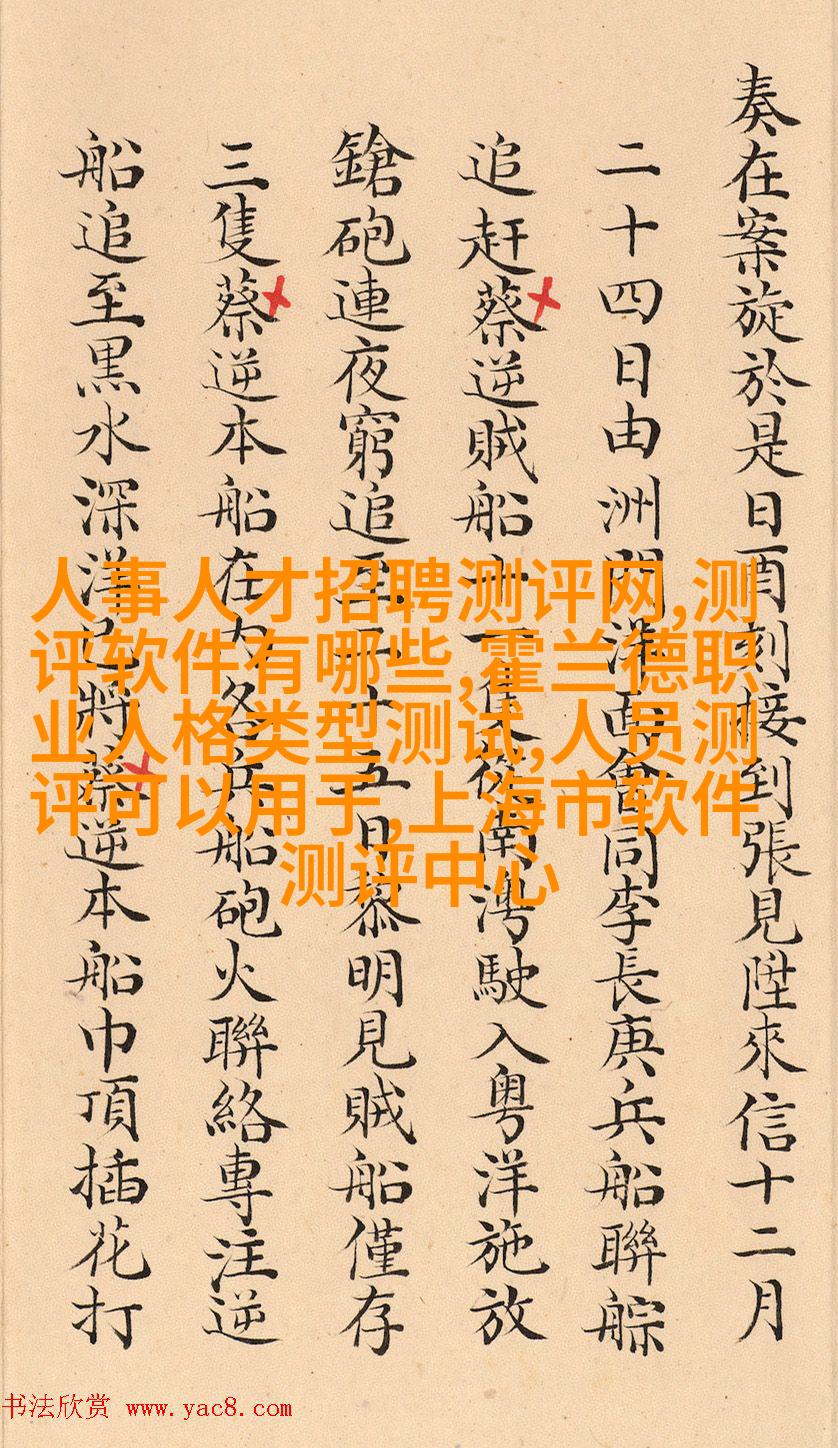 奏在案旋於是日酉刻接到張見陞來信十二月
二十四日由洲港面會同李長庚兵船聯䑸
追赶蔡逆賊船十一隻從南灣駛入粤洋施放
鎗砲連夜窮追至二十五日黎明見賊船僅存
三隻蔡逆本船在内各兵船砲火聯絡專注逆
船追至黒水深洋已將蔡逆本船巾頂插花打
人事人才招聘测评网,测
评软件有哪些,霍兰德职
业人格类型测试,人员测
评可以用于,上海市软件
测评中心
书法欣赏 www.yac8.com